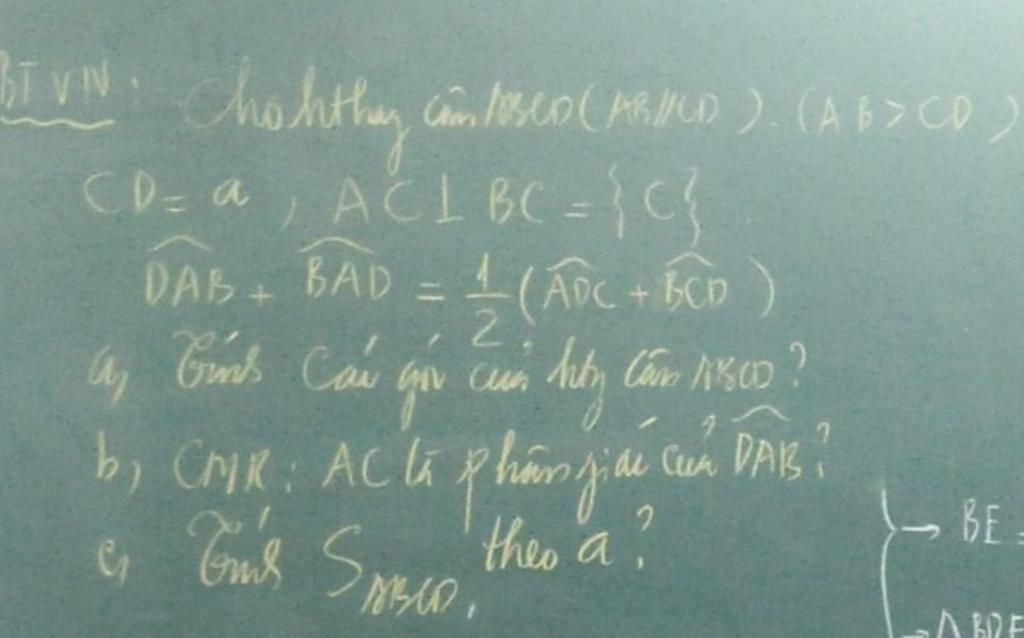 BTVN: Cho hthg cân ABCD (AB//CD). (AB > CD)
CD = a, AC ⊥ BC = {C}
DAB + BAD = 1/2 (ADC + BCD)
a, Tính các góc của htg cân ABCD?
b, CMR: AC là phân giác của DAB?
c, Tính S ABCD theo a?
→ BE =
→ ∆ BDE